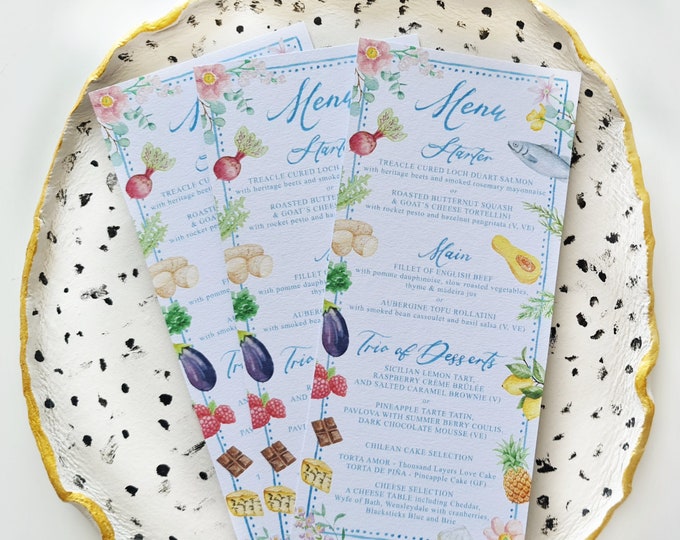 Menu
Starter
TREACLE CURED LOCH DUART SALMON
with heritage beets and smoked rosemary mayonnaise
or
ROASTED BUTTERNUT SQUASH
& GOAT'S CHEESE TORTELLINI
with rocket pesto and hazelnut pangritata (V, VE)
Main
FILLET OF ENGLISH BEEF
with pomme dauphinoise, slow roasted vegetables,
thyme & madeira jus
or
AUBERGINE TOFU ROLLATINI
with smoked bean cassoulet and basil salsa (V, VE)
Trio of Desserts
SICILIAN LEMON TART,
RASPBERRY CRÈME BRÛLÉE
AND SALTED CARAMEL BROWNIE (V)
or
PINEAPPLE TARTE TATIN,
PAVLOVA WITH SUMMER BERRY COULIS,
DARK CHOCOLATE MOUSSE (VE)
CHILEAN CAKE SELECTION
TORTA AMOR - Thousand Layers Love Cake
TORTA DE PIÑA - Pineapple Cake (GF)
CHEESE SELECTION
A CHEESE TABLE including Cheddar,
Wyfe of Bath, Wensleydale with cranberries,
Blacksticks Blue and Brie
Menu
Starter
TREACLE CURED LO
with heritage beets and smoked
or
ROASTED BUTTERN
& GOAT'S CHEESE
with rocket pesto and
FILLET OF
with pomme
thyme
AUBERGINE
with smoked bea